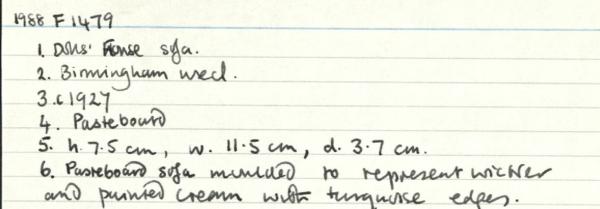 1988 F 1479
1. Dolls' House sofa.
2. Birmingham used.
3. c1927
4. Pasteboard
5. h. 7.5 cm, w. 11.5 cm, d. 3.7 cm.
6. Pasteboard sofa moulded to represent wicker
and painted cream with turquoise edges.